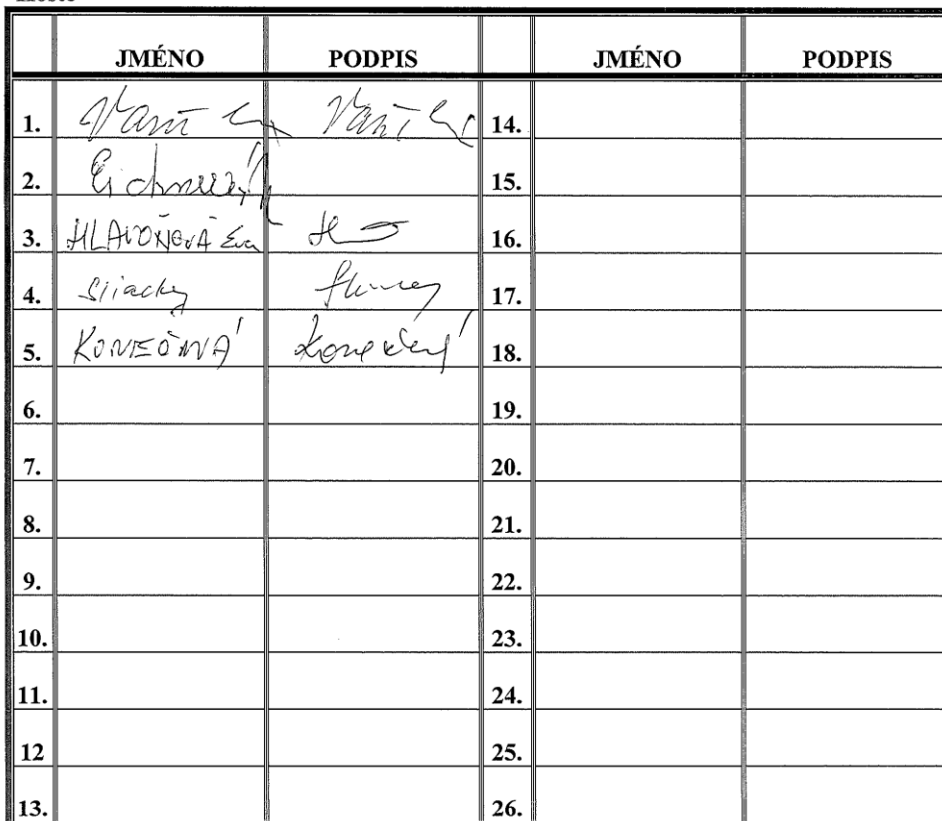 JMÉNO PODPIS JMÉNO PODPIS
1. 14.
2. 15.
3. HLAVOŇOVÁ Eva 16.
4. 17.
5. KONEČNÁ Konečná 18.
6. 19.
7. 20.
8. 21.
9. 22.
10. 23.
11. 24.
12 25.
13. 26.